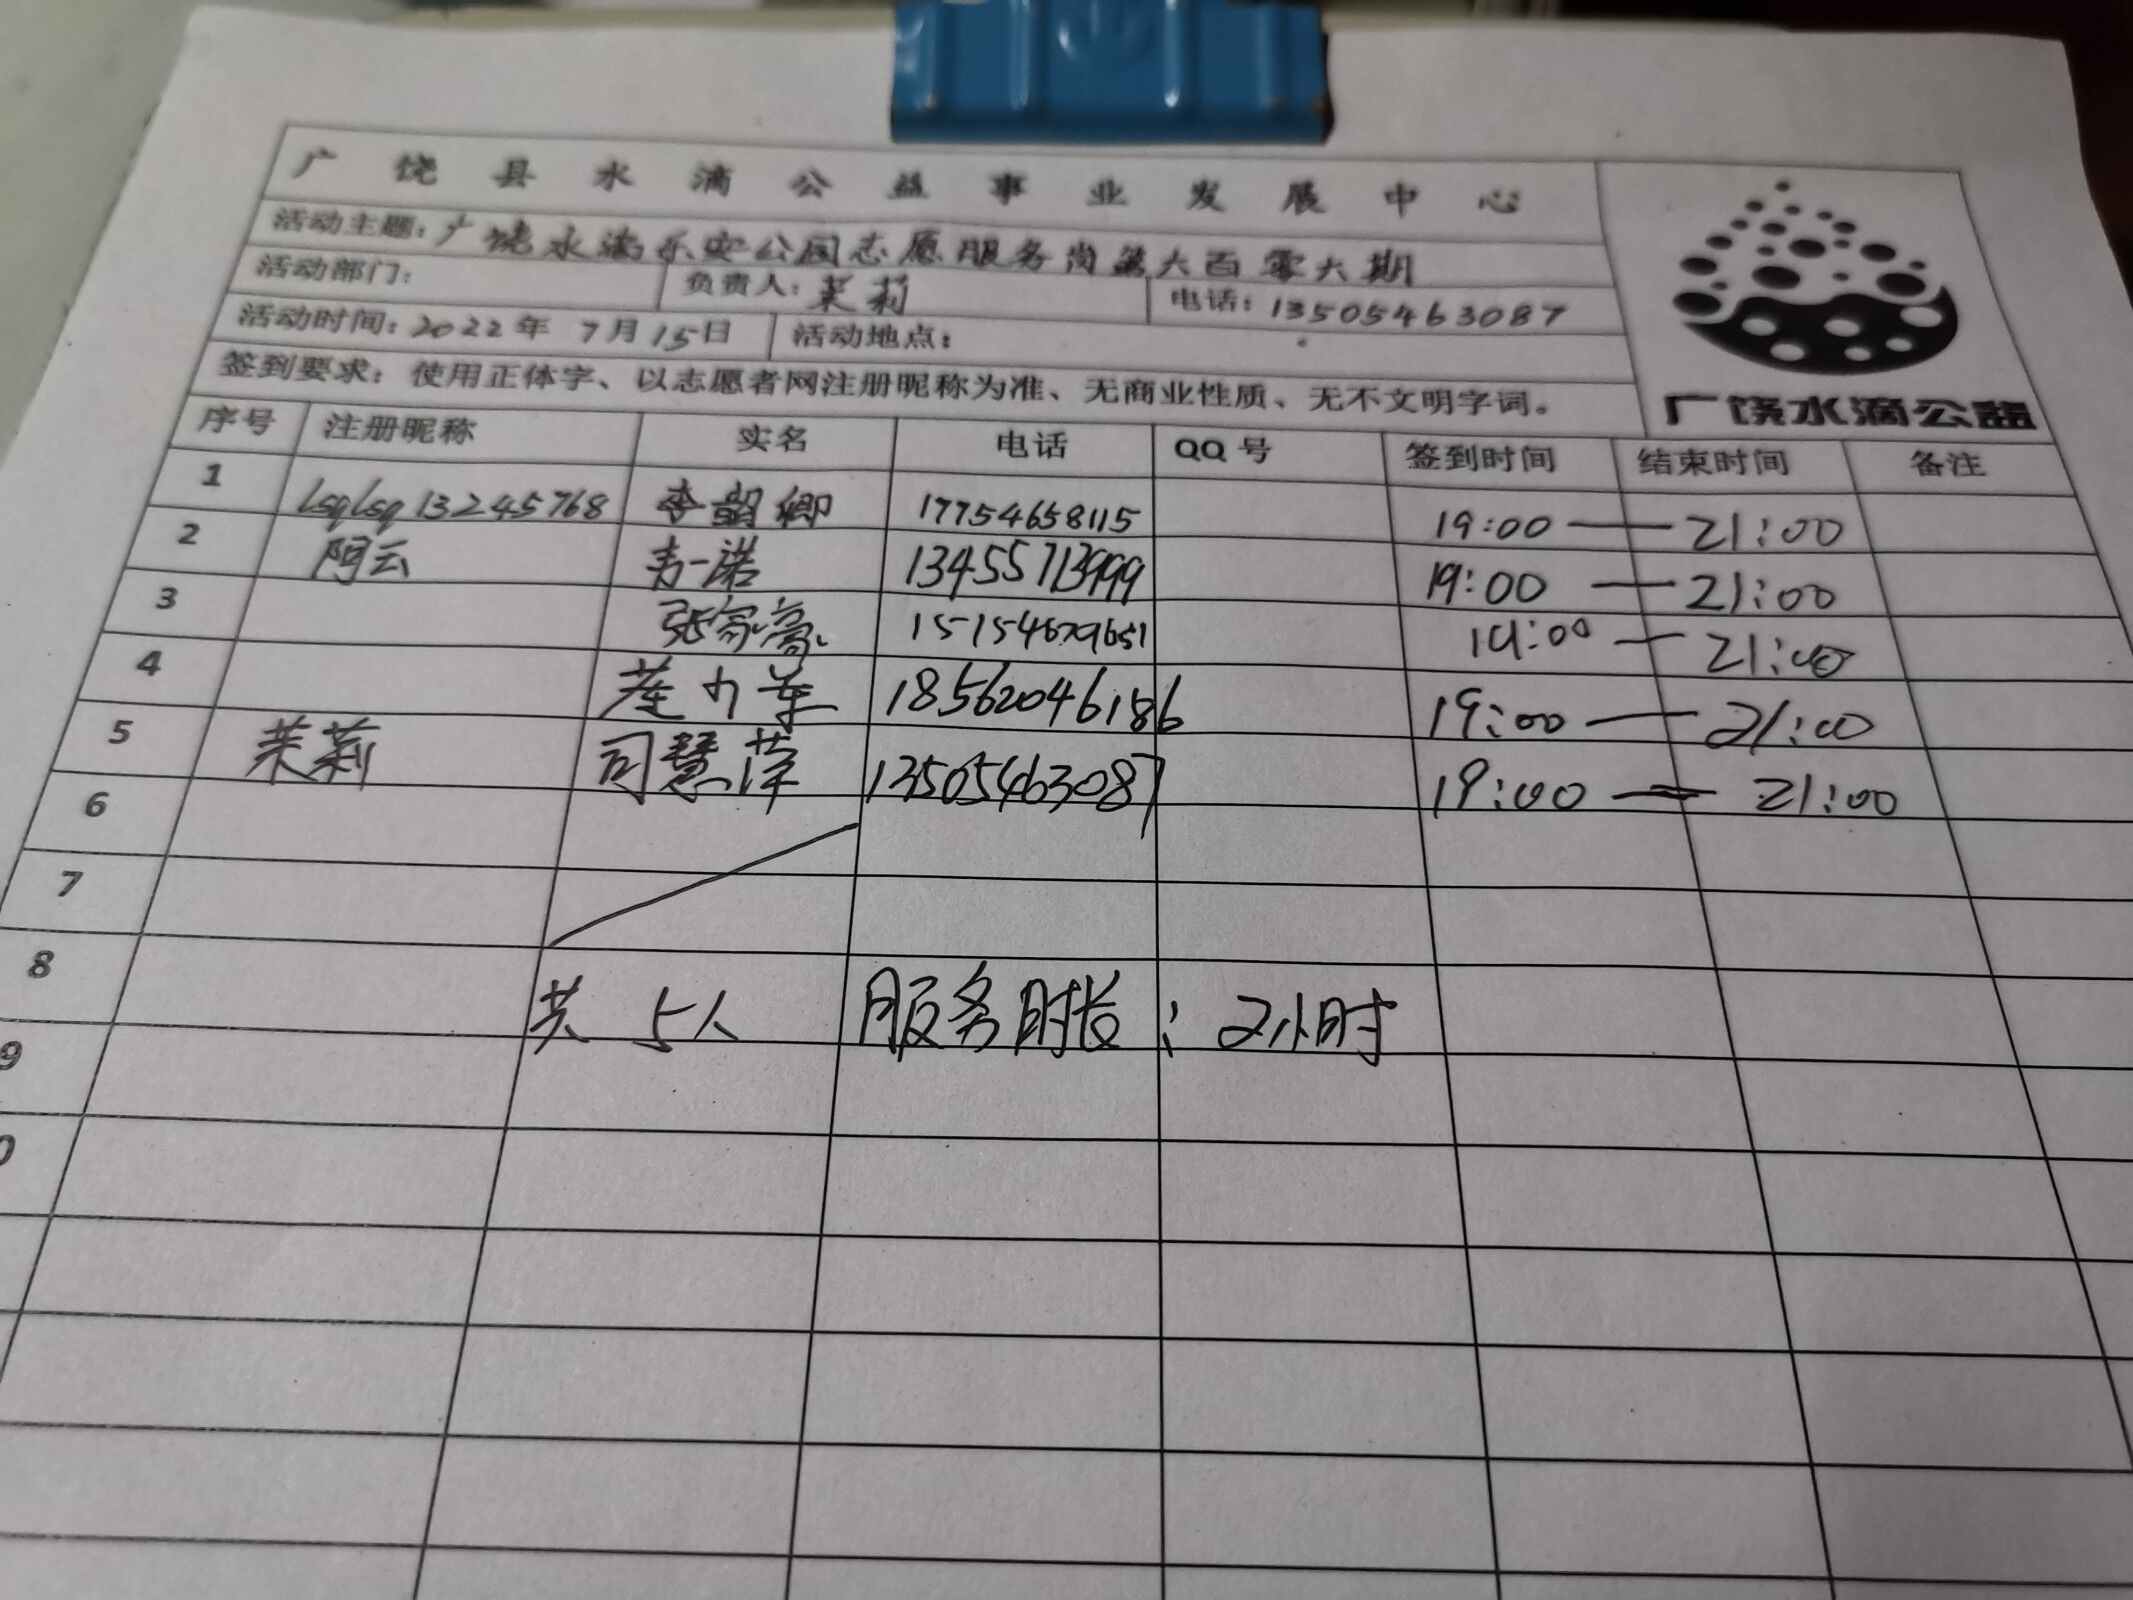 广饶县水滴公益事业发展中心
活动主题：广饶水滴乐安公园志愿服务岗第六百零六期
活动部门： 负责人：茉莉 电话：13505463087
活动时间：2022年7月15日 活动地点：
签到要求：使用正体字、以志愿者网注册昵称为准、无商业性质、无不文明字词。
广饶水滴公益
序号 注册昵称 实名 电话 QQ号 签到时间 结束时间 备注
1 lsqlsq13245768 李韶卿 17754658115 19:00 — 21:00
2 阿云 韦一诺 13455713999 19:00 — 21:00
3 张家豪 15154679651 19:00 — 21:00
4 18562046186 19:00 — 21:00
5 茉莉 司慧萍 13505463087 19:00 — 21:00
6
7
8 共5人 服务时长：2小时
9
0